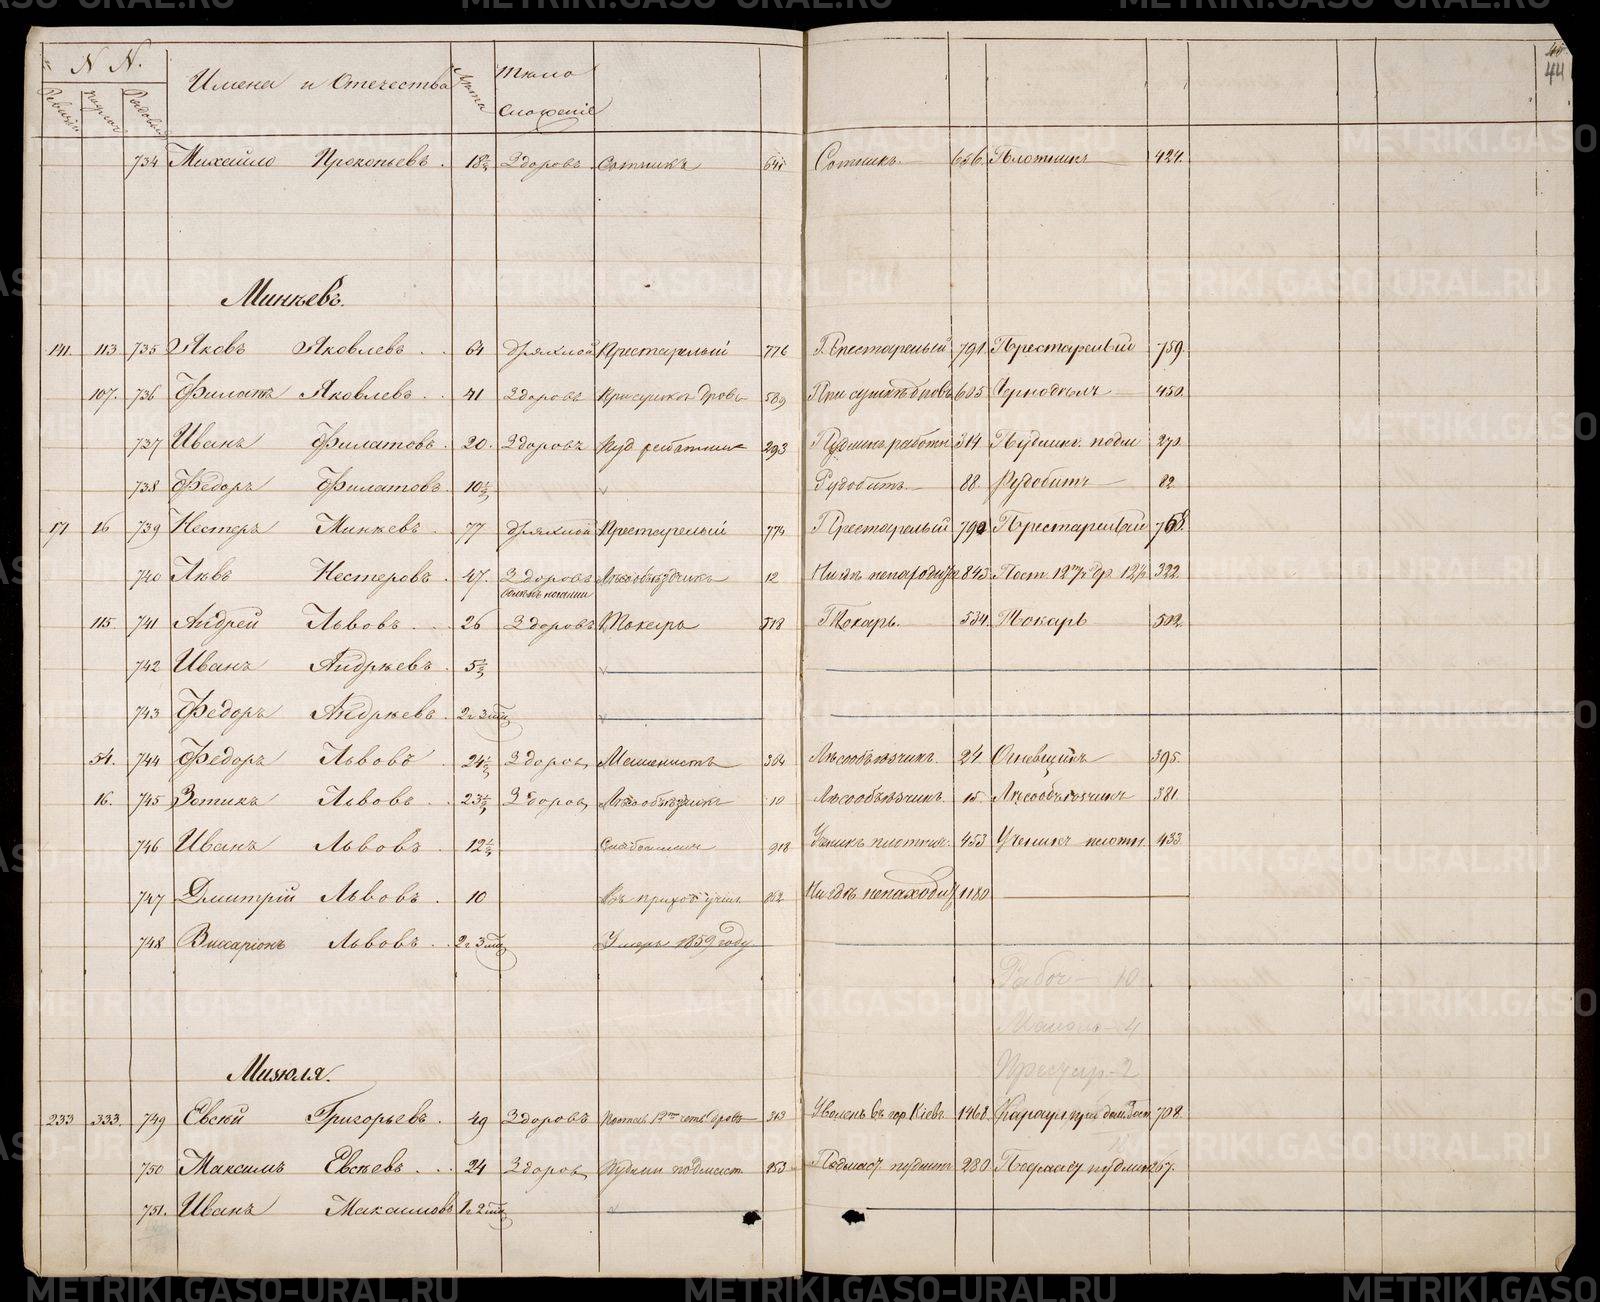 N N. Имена и Отечества Лѣта Тѣло сложеніе 44
734 Михайло Прокопьевъ. 18½ Здоровъ Сотникъ 645 Сотникъ. 656. Плотникъ 424.
Минѣевъ.
141. 113. 735 Яковъ Яковлевъ. 64 Дряхлой Престарелый 776 Престарелый 791. Престарелый 759.
107. 736 Филатъ Яковлевъ. 41 Здоровъ При сушкѣ дровъ 589 При сушкѣ дровъ 605 Чернодѣлъ 450.
737 Иванъ Филатовъ. 20. Здоровъ Куд. работникъ 293 Пудлинг. работн 314 Пудлинг. подм 270.
738 Федоръ Филатовъ. 10½ Рудобитъ 88. Рудобитъ 82
171 16 739 Нестеръ Минѣевъ. 77 Дряхлой Престарелый 774 Престарелый 790 Престарелый 758.
740 Левъ Нестеровъ. 47. Здоровъ Лѣсообъѣздчикъ 12 845 322.
боленъ ногами
115. 741 Андрей Львовъ. 26 Здоровъ Токарь 518 Токарь. 534. Токарь 502.
742 Иванъ Андрѣевъ. 5½
743 Федоръ Андрѣевъ. 2 г 3 мѣ
54. 744 Федоръ Львовъ 24½ Здоровъ Машинистъ 364 Лѣсообъѣзчикъ. 24. Огневщикъ 395.
16. 745 Зотикъ Львовъ. 23½ Здоровъ Лѣсообъѣзчикъ 10 Лѣсообъѣзчикъ. 15. Лѣсообъѣзчикъ 381.
746 Иванъ Львовъ. 12½ 918 Ученикъ плотнич. 453 Ученикъ плотн. 433.
747 Дмитрій Львовъ. 10 Въ приход. учил. 862 Нигдѣ ненаходит. 1180
748 Виссаріонъ Львовъ. 2 г 3 мѣ Умеръ 1859 году
Рабоч — 10
Малол — 4
Престар — 2
Мизюля.
233 333. 749 Евсѣй Григорьевъ. 49 Здоровъ 363 Уволенъ въ гор. Кіевъ. 1468. Караул. при дом. 708.
750 Максимъ Евсѣевъ. 24 Здоровъ Пудлин подмаст. 253 Подмаст. пудлинг. 280. Подмаст. пудлин 267.
751. Иванъ Максимовъ 1 г 2 мѣ